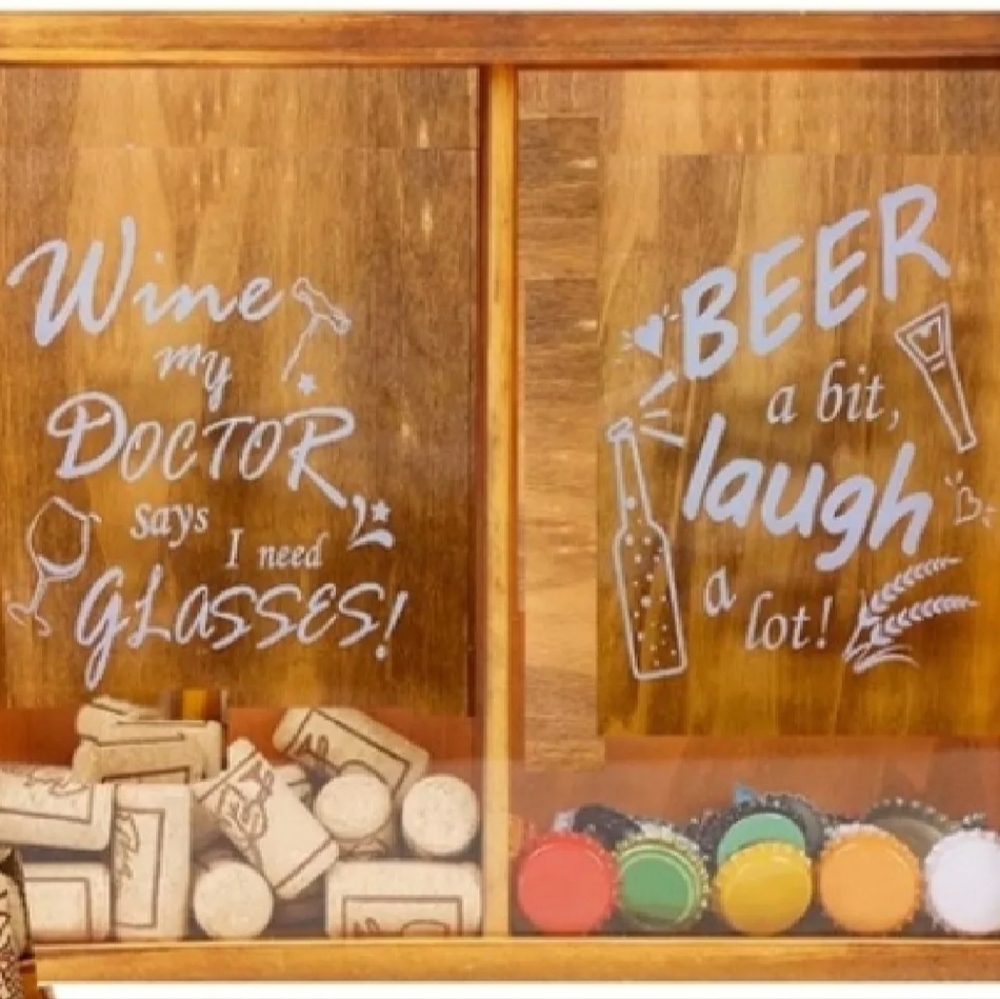 Wine
my
DOCTOR
says
I need
GLASSES!
BEER
a bit,
laugh
a
lot!